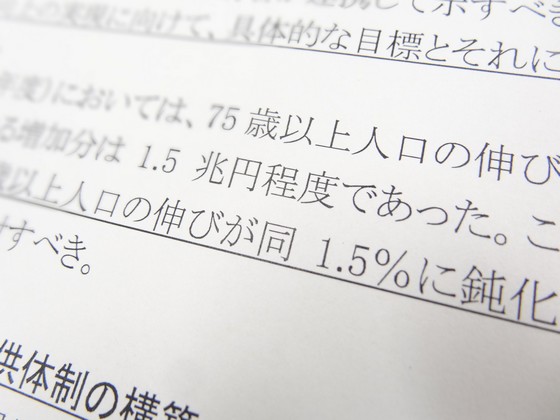 て示すべき
の実現に向けて、具体的な目標とそれに
年度)においては、75 歳以上人口の伸び
る増加分は 1.5 兆円程度であった。こ
歳以上人口の伸びが同 1.5%に鈍化
すべき。
供体制の構築